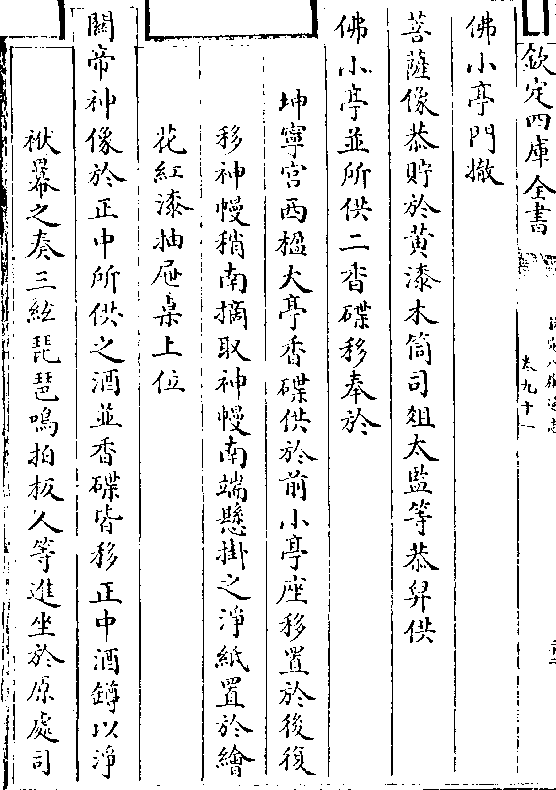 欽定四庫全書
卷九十一
佛小亭門撤
菩薩像恭貯於黄漆木筒司俎太監等恭舁供
佛小亭並所供二香碟移奉於
坤寧宫西楹大亭香碟供於前小亭座移置於後復
移神幔稍南摘取神幔南端懸掛之淨紙置於繪
花紅漆抽屉桌上位
關帝神像於正中所供之酒並香碟皆移正中酒罇以淨
袱羃之奏三絃琵琶鳴拍板人等進坐於原處司